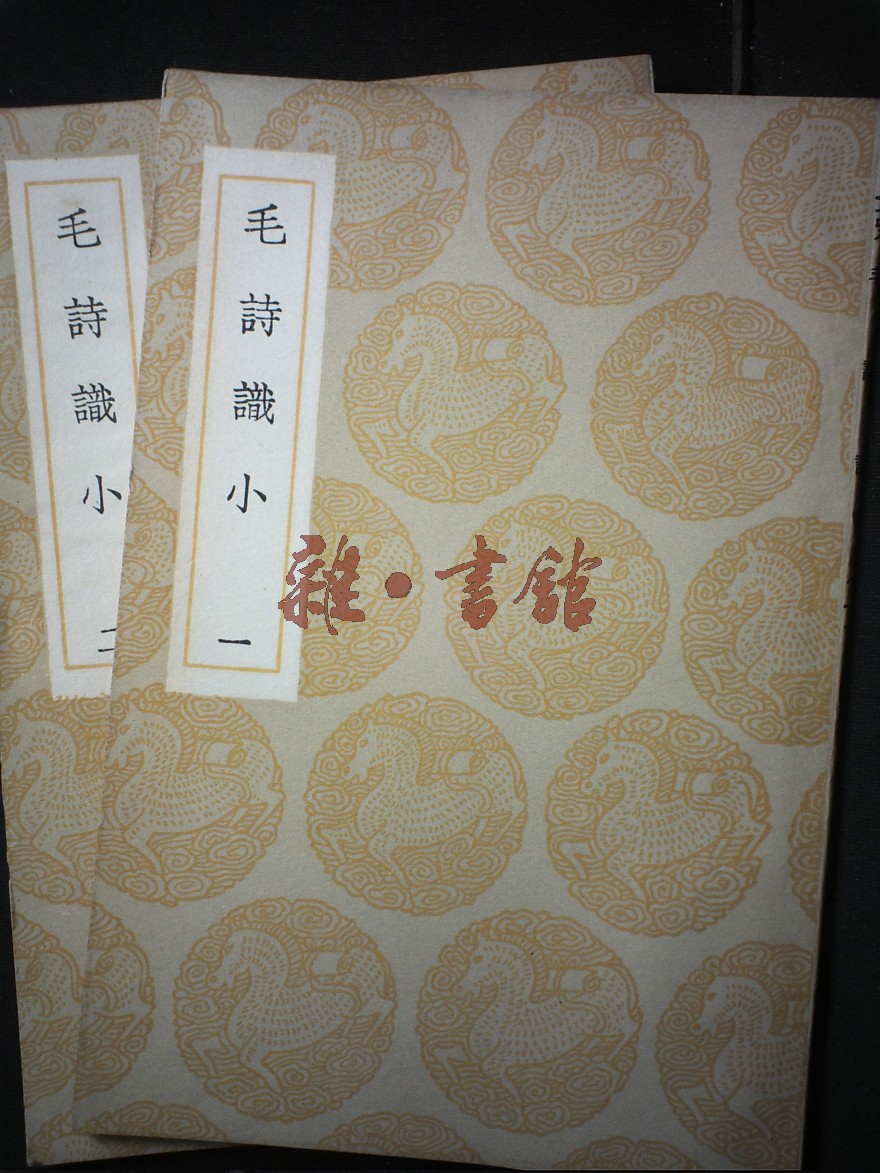 毛詩識小
一
毛詩識小
二
雜·書館